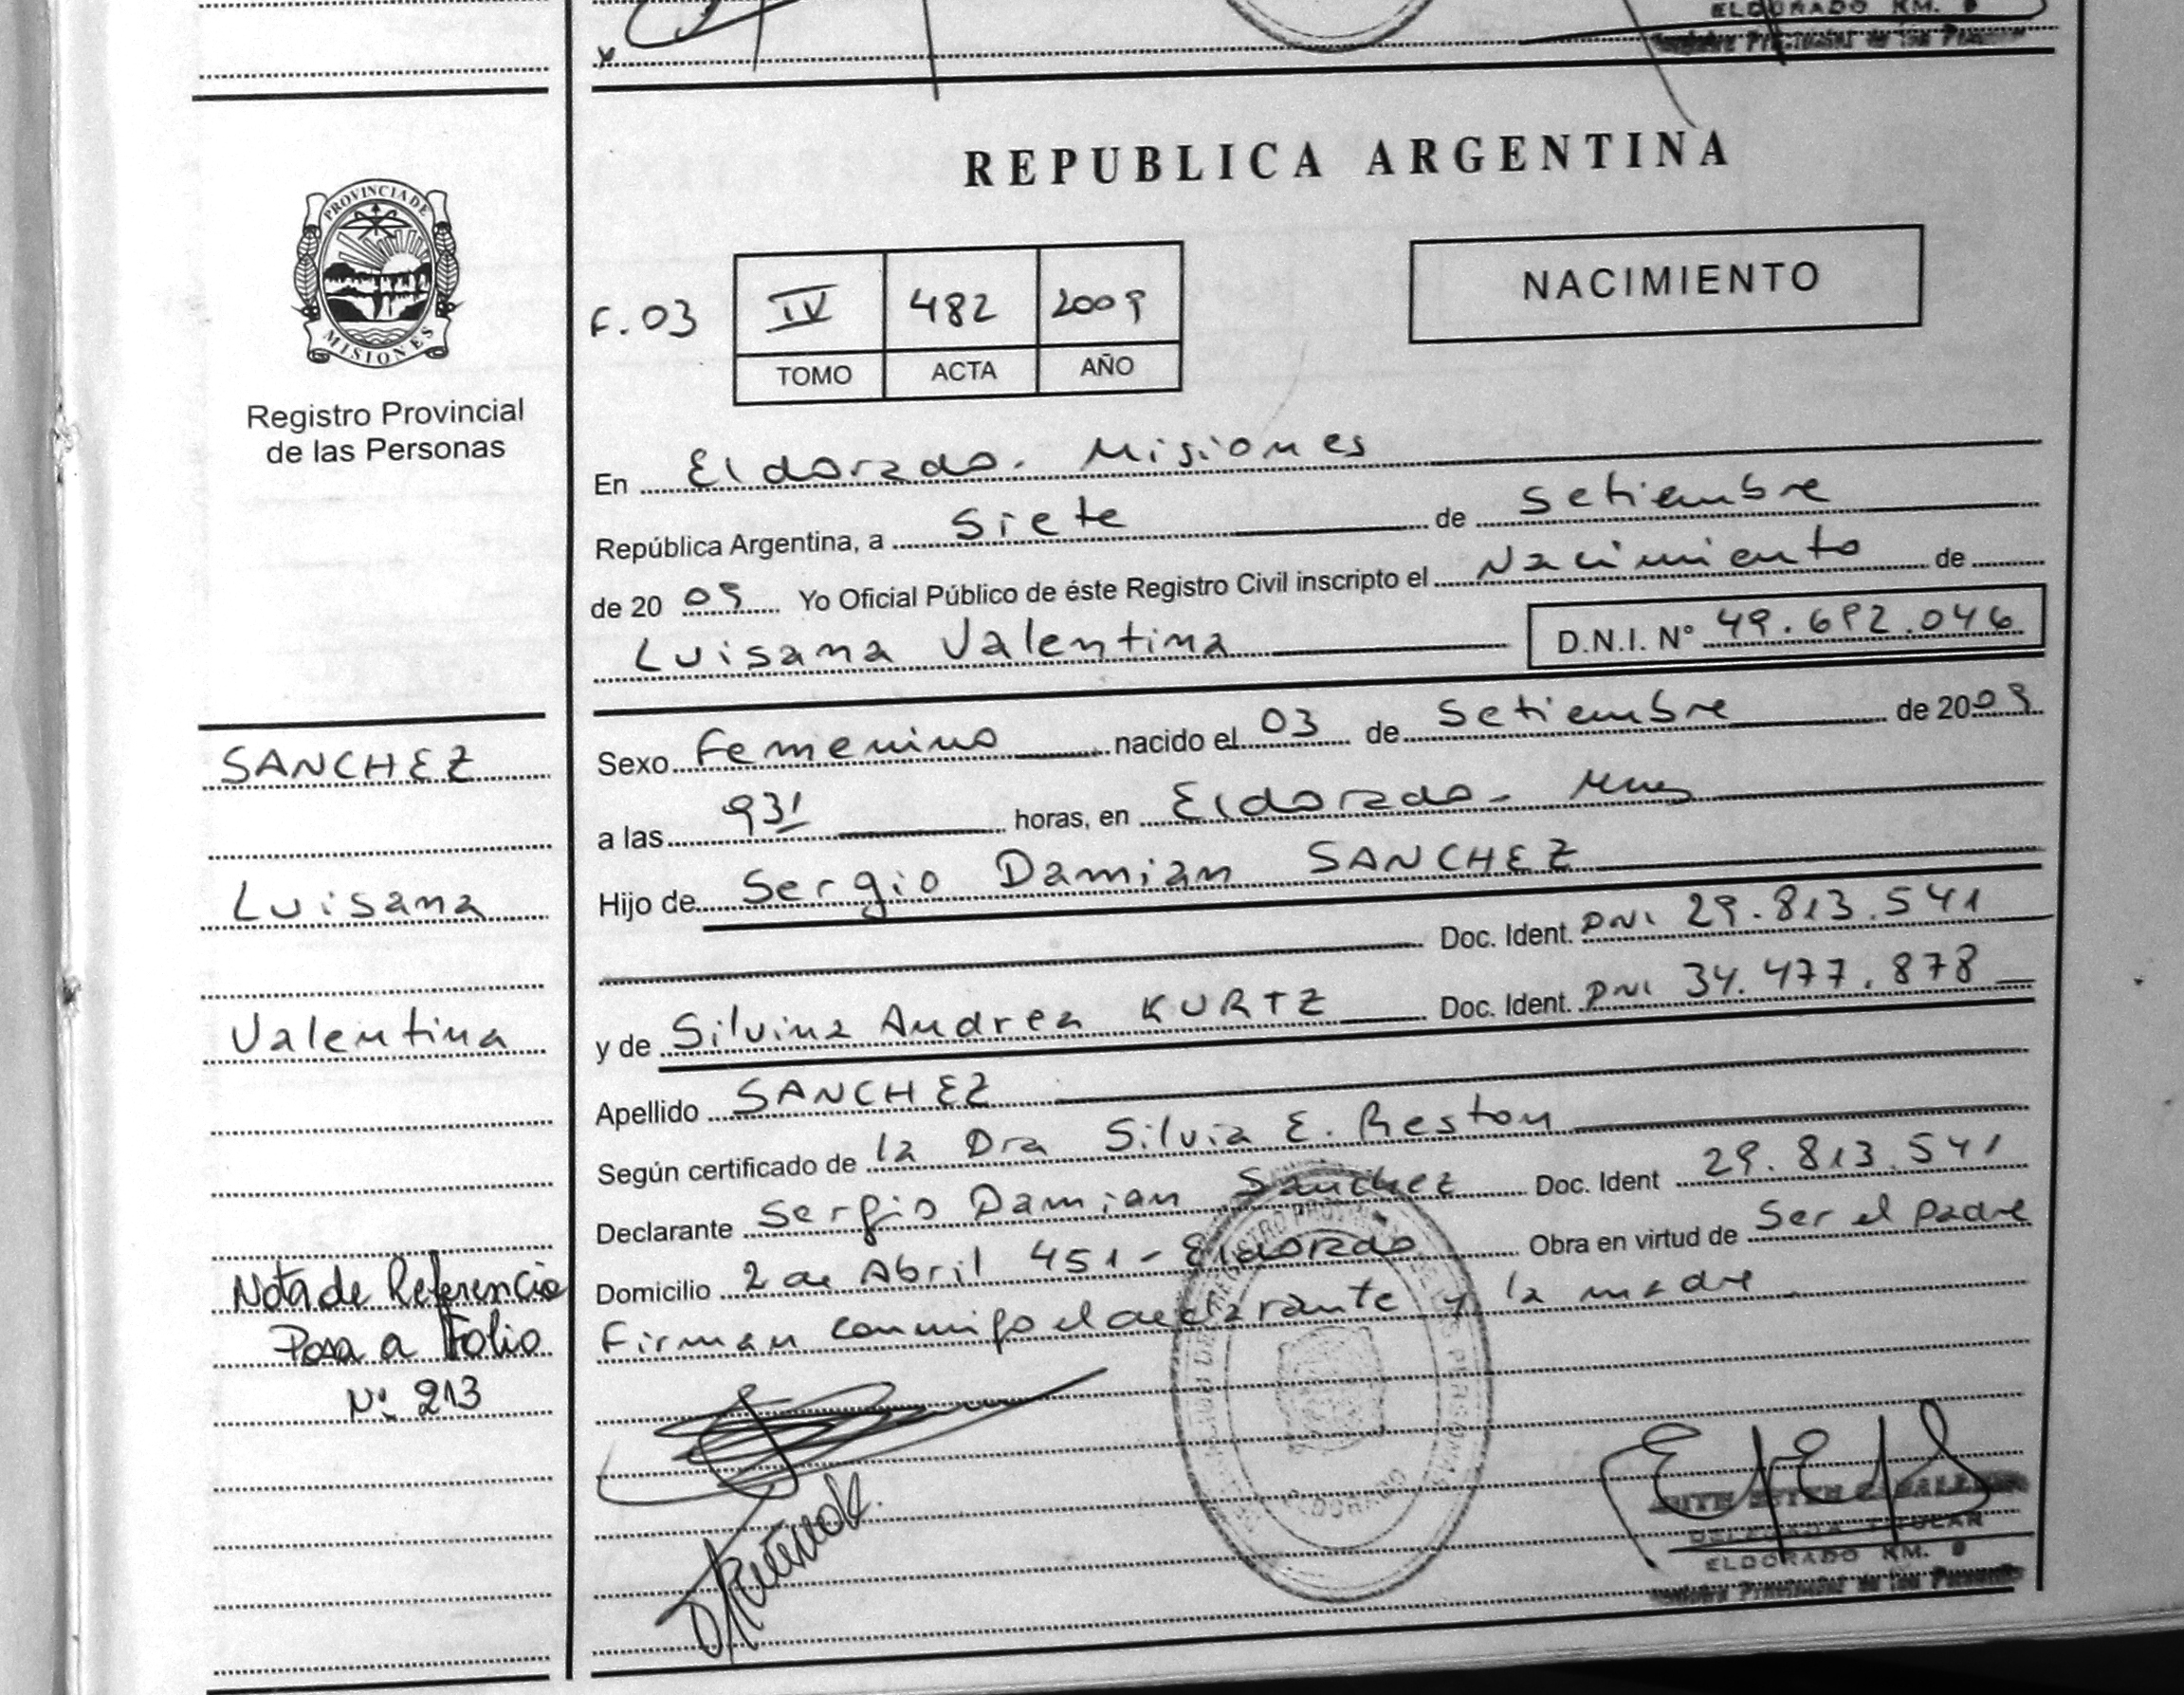 ELDORADO KM. 9
REPUBLICA ARGENTINA
PROVINCIA DE
MISIONES
Registro Provincial
de las Personas
F.03 IV 482 2009
TOMO ACTA AÑO
NACIMIENTO
En Eldorado. Misiones
República Argentina, a siete de Setiembre
de 20 09 Yo Oficial Público de éste Registro Civil inscripto el Nacimiento de
Luisana Valentina D.N.I. N° 49.692.046
Sexo Femenino nacido el 03 de Setiembre de 2009
a las 931 horas, en Eldorado - Mnes
Hijo de Sergio Damian SANCHEZ
Doc. Ident. DNI 29.813.541
y de Silvina Andrea KURTZ Doc. Ident. DNI 34.477.878
Apellido SANCHEZ
Según certificado de la Dra Silvia E. Reston
Declarante Sergio Damian Sanchez Doc. Ident 29.813.541
Domicilio 2 de Abril 451 - Eldorado Obra en virtud de Ser el padre
Firman conmigo el declarante y la madre
SANCHEZ
Luisana
Valentina
Nota de Referencia
Pasa a Folio
N° 213
ELDORADO
DELEGADA TITULAR
ELDORADO KM. 9